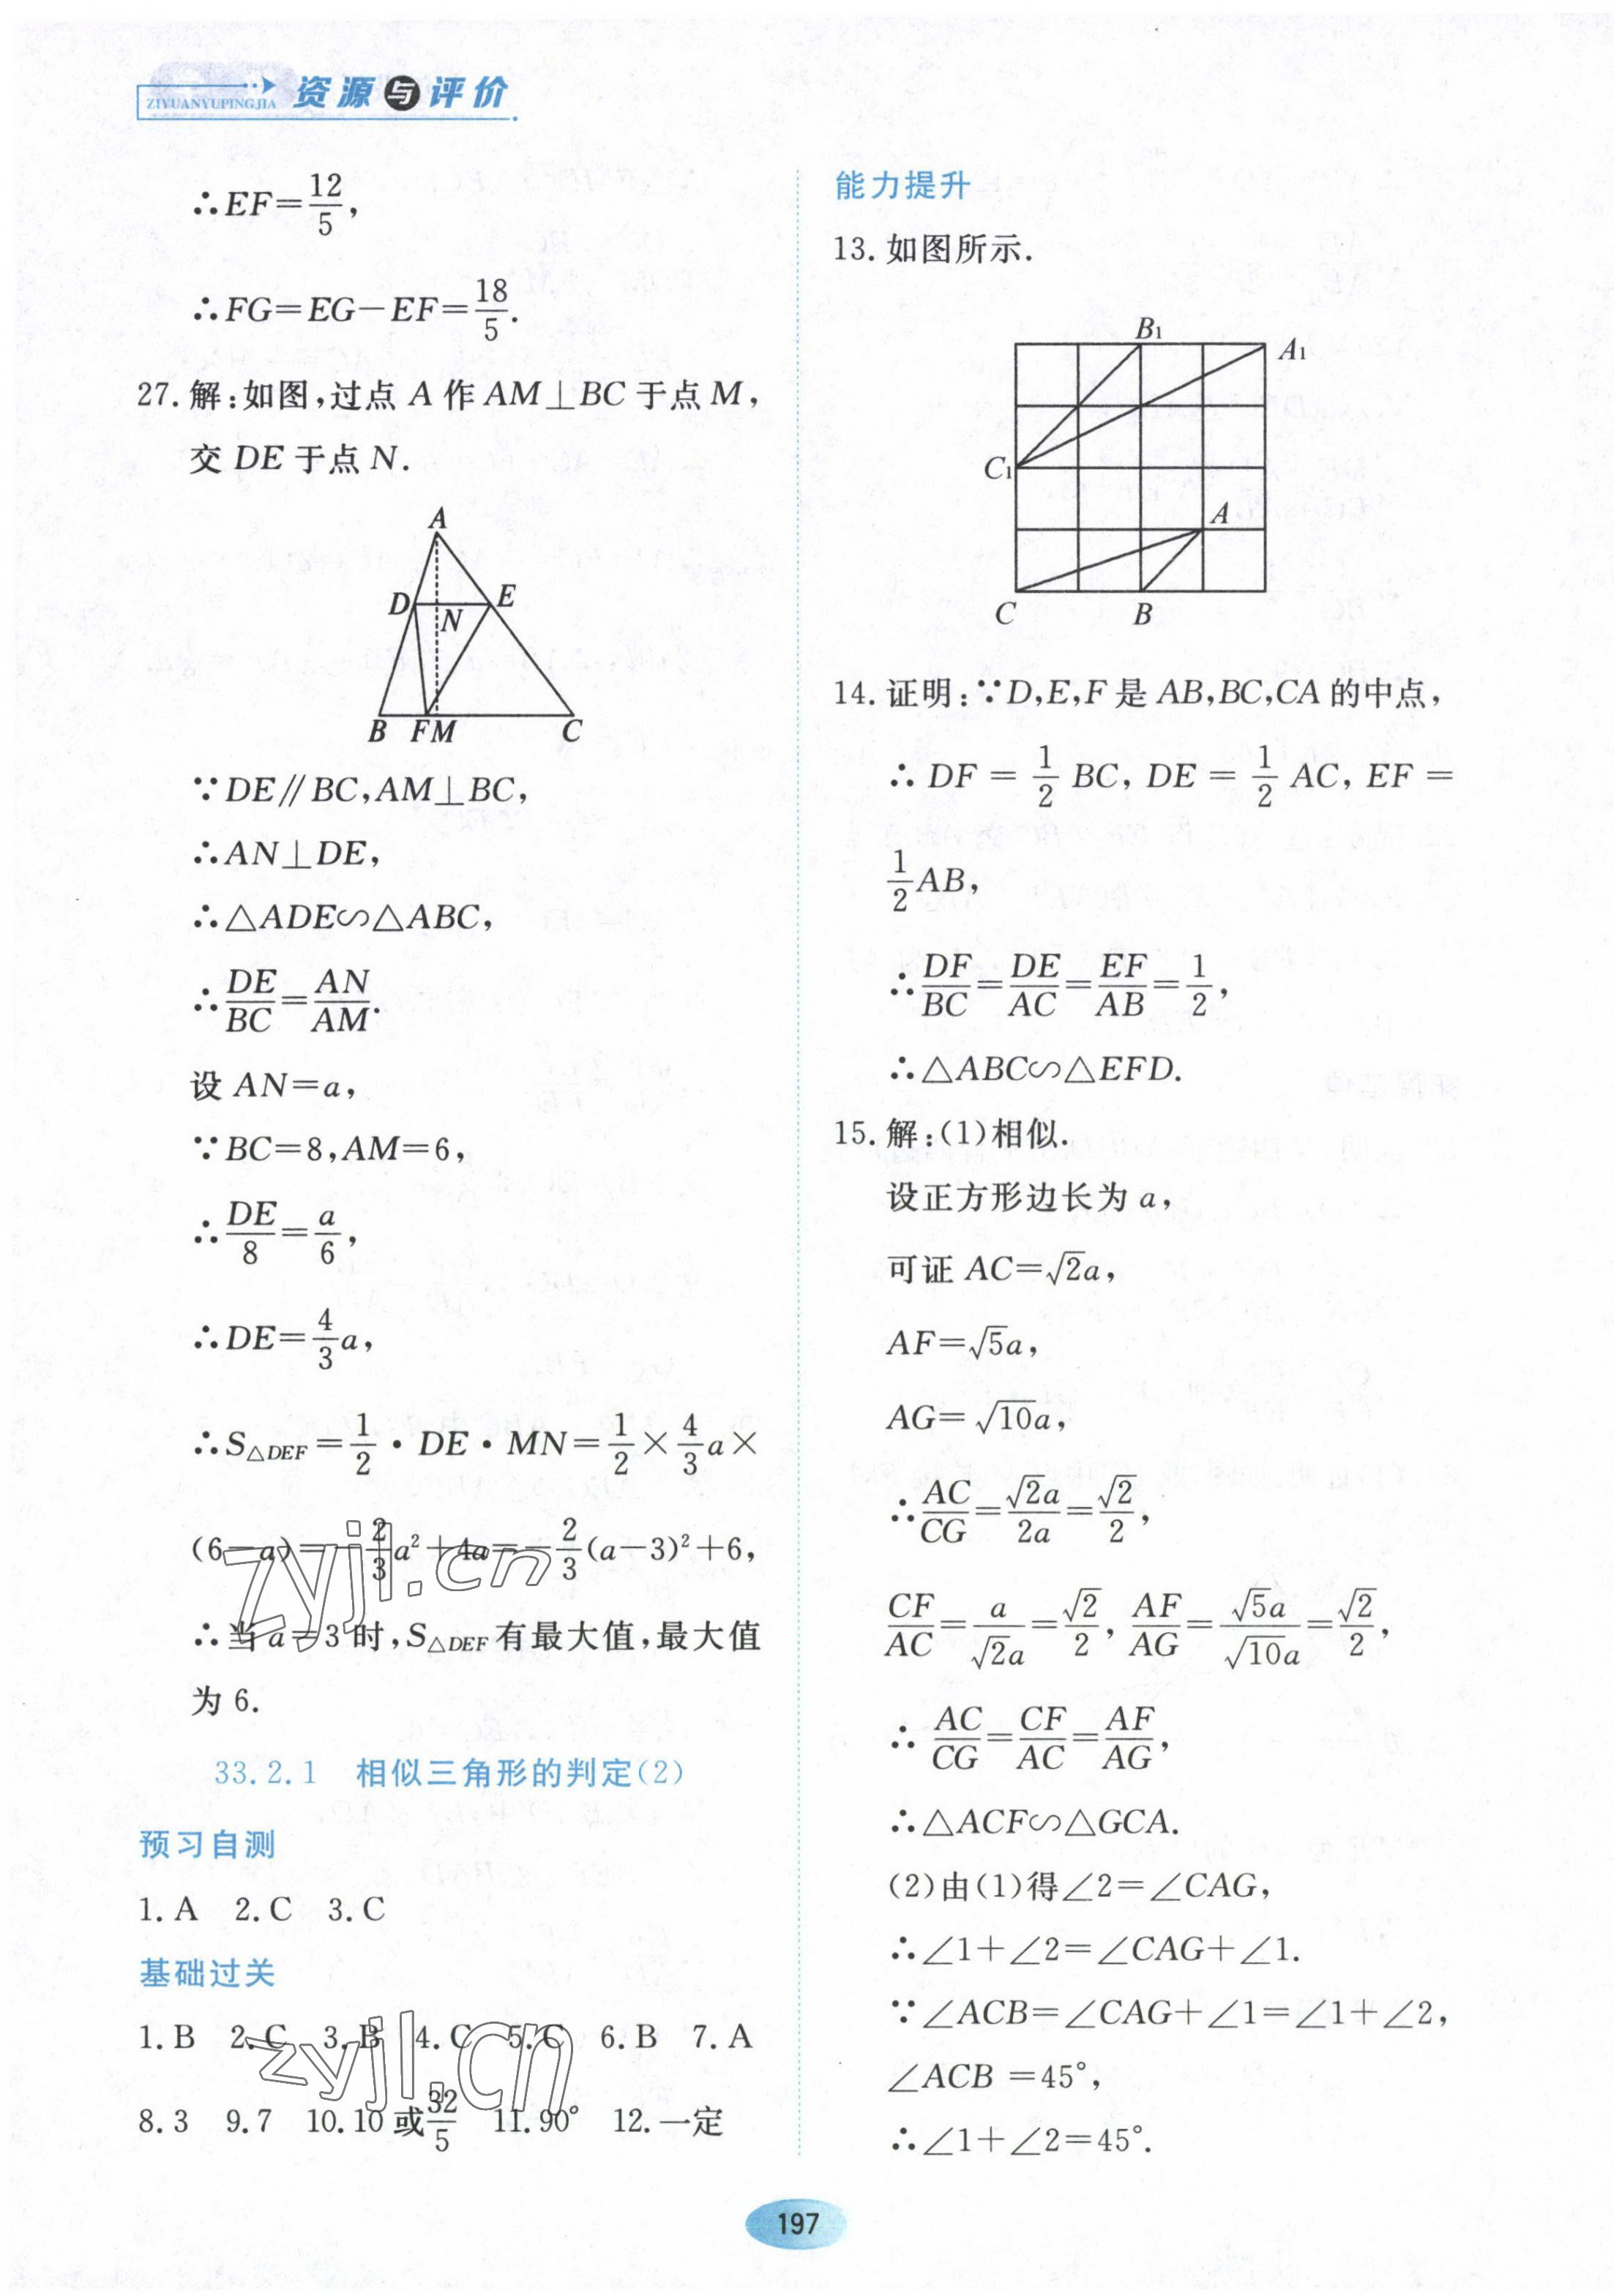 ZIYUANYUPINGJIA 资源与评价
∴EF=12/5,
∴FG=EG-EF=18/5.
27. 解:如图,过点 A 作 AM⊥BC 于点 M,
交 DE 于点 N.
A
D E
N
B F M C
∵DE∥BC,AM⊥BC,
∴AN⊥DE,
∴△ADE∽△ABC,
∴DE/BC=AN/AM.
设 AN=a,
∵BC=8,AM=6,
∴DE/8=a/6,
∴DE=4/3a,
∴S△DEF=1/2·DE·MN=1/2×4/3a×
(6-a)=-2/3a²+4a=-2/3(a-3)²+6,
∴当 a=3 时,S△DEF有最大值,最大值
为 6.
33.2.1 相似三角形的判定(2)
预习自测
1. A 2. C 3. C
基础过关
1. B 2. C 3. B 4. C 5. C 6. B 7. A
8. 3 9. 7 10. 10 或32/5 11. 90° 12. 一定
能力提升
13. 如图所示.
B₁
A₁
C₁
A
C B
14. 证明:∵D,E,F 是 AB,BC,CA 的中点,
∴ DF = 1/2 BC, DE = 1/2 AC, EF =
1/2AB,
∴DF/BC=DE/AC=EF/AB=1/2,
∴△ABC∽△EFD.
15. 解:(1)相似.
设正方形边长为 a,
可证 AC=√2a,
AF=√5a,
AG=√10a,
∴AC/CG=√2a/2a=√2/2,
CF/AC=a/√2a=√2/2, AF/AG=√5a/√10a=√2/2,
∴ AC/CG=CF/AC=AF/AG,
∴△ACF∽△GCA.
(2)由(1)得∠2=∠CAG,
∴∠1+∠2=∠CAG+∠1.
∵∠ACB=∠CAG+∠1=∠1+∠2,
∠ACB =45°,
∴∠1+∠2=45°.
197
zyjl.cn
zyjl.cn